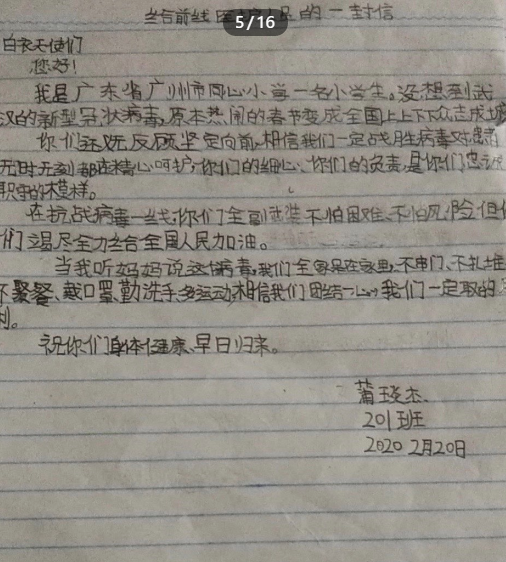 给前线医护人员的一封信
5/16
白衣天使们
您好!
我是广东省广州市同心小学一名小学生。没想到武
汉的新型冠状病毒,原本热闹的春节变成全国上上下下众志成城
你们义无反顾坚定向前,相信我们一定战胜病毒对患者
无时无刻都在精心呵护,你们的细心、你们的负责,是你们忠于
职守的模样。
在抗战病毒一线,你们全副武装不怕困难、不怕风险但
们竭尽全力给全国人民加油。
当我听妈妈说这个病毒,我们全家呆在家里,不串门、不扎堆
不聚餐、戴口罩、勤洗手、多运动,相信我们团结一心,我们一定取的
利。
祝你们身体健康、早日归来。
蒲琰杰
201班
2020 2月20日